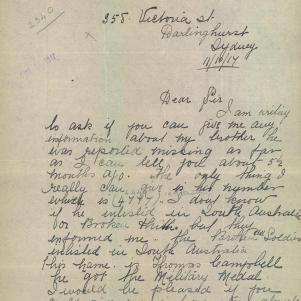 2340
255 Victoria St.
Darlinghurst
Sydney
11/10/17
Dear Sir
I am writing
to ask if you can give me any
information about my brother he
was reported missing as far
as I can tell you about 5½
months ago. The only thing I
really can give is his number
which is (4777) I don't know
if he enlisted in South Australia
or Broken Hill but they
informed me the Soldier
enlisted in South Australia
His name is Thomas Campbell
he got the Military Medal
I would be pleased if you